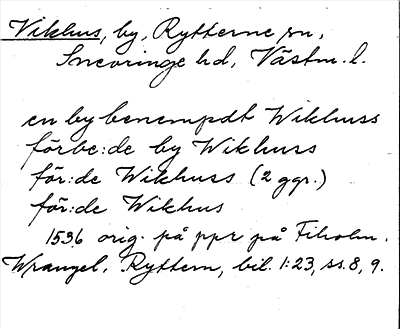 Vikhus, by, Rytterne sn,
Snevringe hd, Västm. l.
en by benempdt Wikhuss
förbe:de by Wikhuss
för:de Wikhuss (2 ggr.)
för:de Wikhus
1536 orig. på ppr på Fiholm.
Wrangel, Ryttern, bil. 1:23, ss. 8, 9.